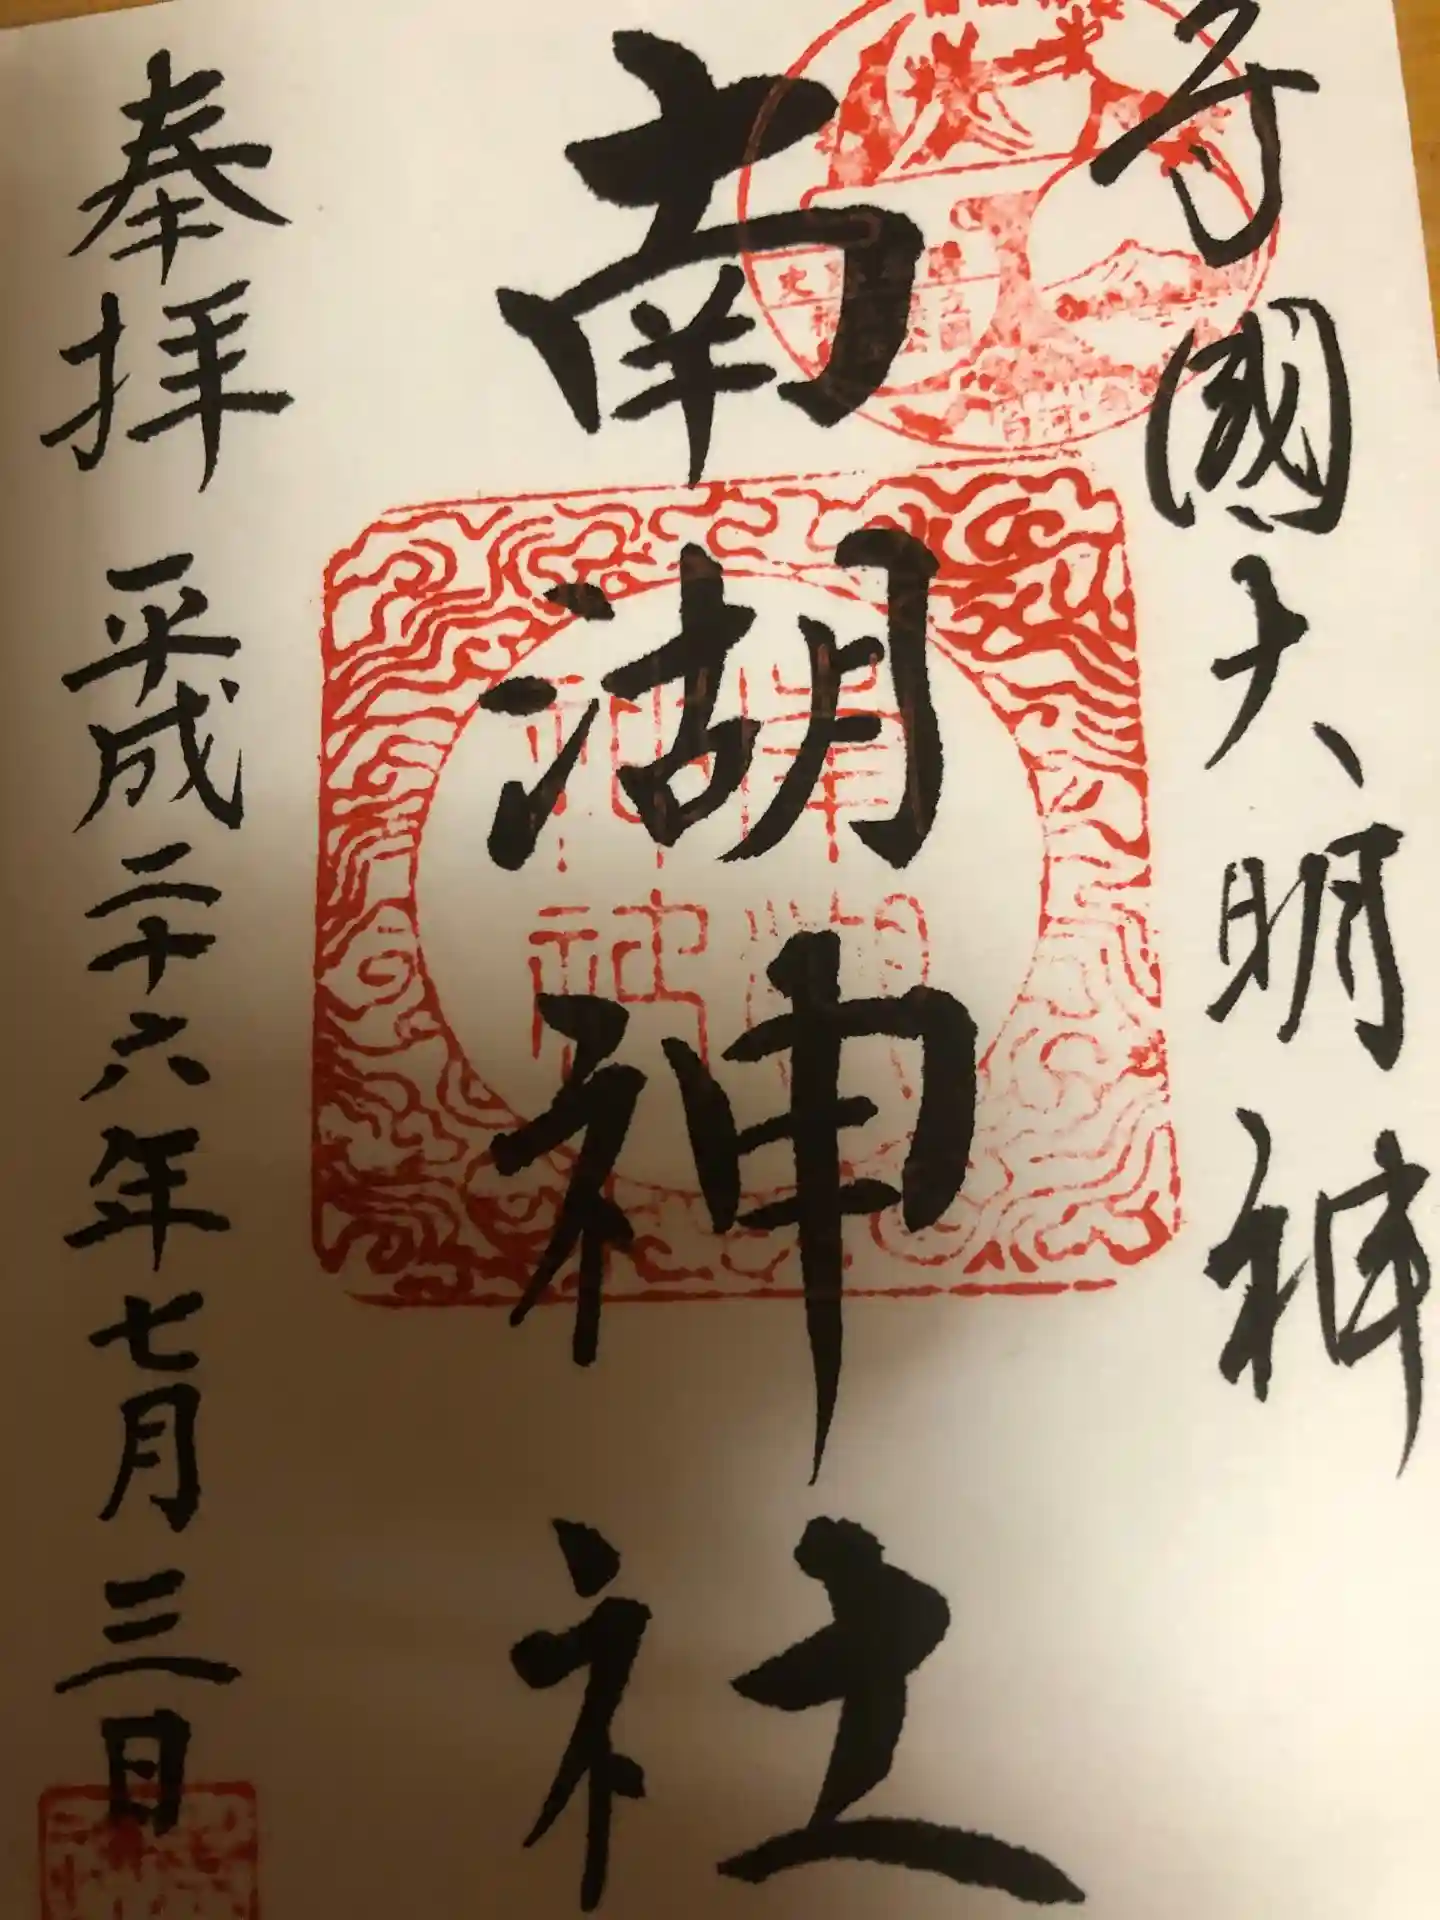 守國大明神
南湖神社
奉拝 平成二十六年七月三日
南湖神社